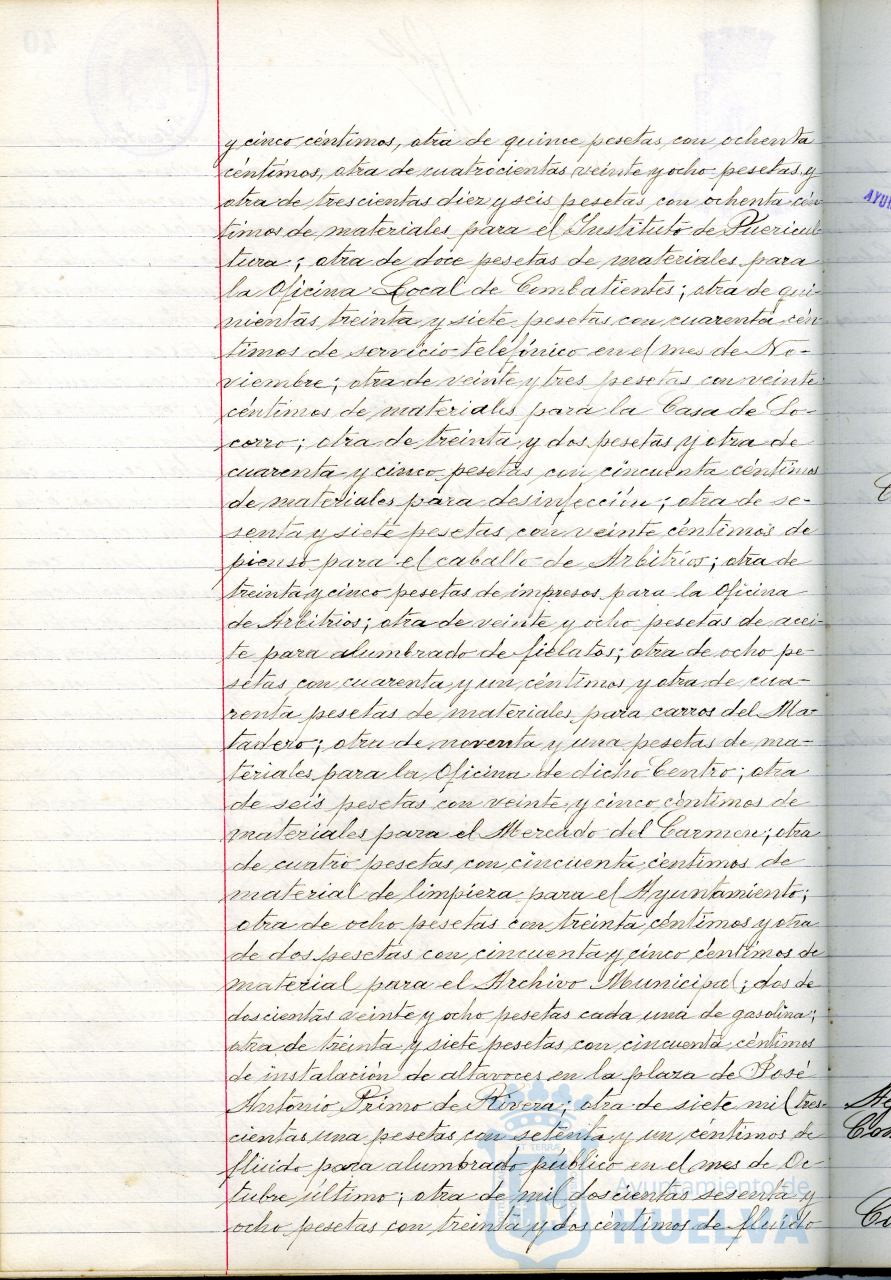 y cinco céntimos, otra de quince pesetas con ochenta
céntimos, otra de cuatrocientas veinte y ocho pesetas y
otra de trescientas diez y seis pesetas con ochenta cén-
timos de materiales para el Instituto de Puericul-
tura; otra de doce pesetas de materiales para
la Oficina Local de Combatientes; otra de qui-
nientas treinta y siete pesetas con cuarenta cén-
timos de servicio telefónico en el mes de No-
viembre; otra de veinte y tres pesetas con veinte
céntimos de materiales para la Casa de So-
corro; otra de treinta y dos pesetas y otra de
cuarenta y cinco pesetas con cincuenta céntimos
de materiales para desinfección; otra de se-
senta y siete pesetas con veinte céntimos de
pienso para el caballo de Arbitrios; otra de
treinta y cinco pesetas de impresos para la Oficina
de Arbitrios; otra de veinte y ocho pesetas de acei-
te para alumbrado de fielatos; otra de ocho pe-
setas con cuarenta y un céntimos y otra de cua-
renta pesetas de materiales para carros del Ma-
tadero; otra de noventa y una pesetas de ma-
teriales para la Oficina de dicho Centro; otra
de seis pesetas con veinte y cinco céntimos de
materiales para el Mercado del Carmen; otra
de cuatro pesetas con cincuenta céntimos de
material de limpieza para el Ayuntamiento;
otra de ocho pesetas con treinta céntimos y otra
de dos pesetas con cincuenta y cinco céntimos de
material para el Archivo Municipal; dos de
doscientas veinte y ocho pesetas cada una de gasolina;
otra de treinta y siete pesetas con cincuenta céntimos
de instalación de altavoces en la plaza de José
Antonio Primo de Rivera; otra de siete mil tres-
cientas una pesetas con setenta y un céntimos de
flúido para alumbrado público en el mes de Oc-
tubre último; otra de mil doscientas sesenta y
ocho pesetas con treinta y dos céntimos de flúido
Ayuntamiento de
HUELVA
40